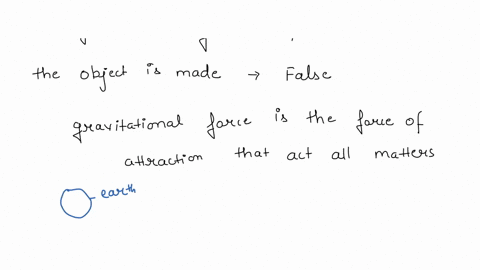 the object is made → False
gravitational force is the force of
attraction that act all matters
earth